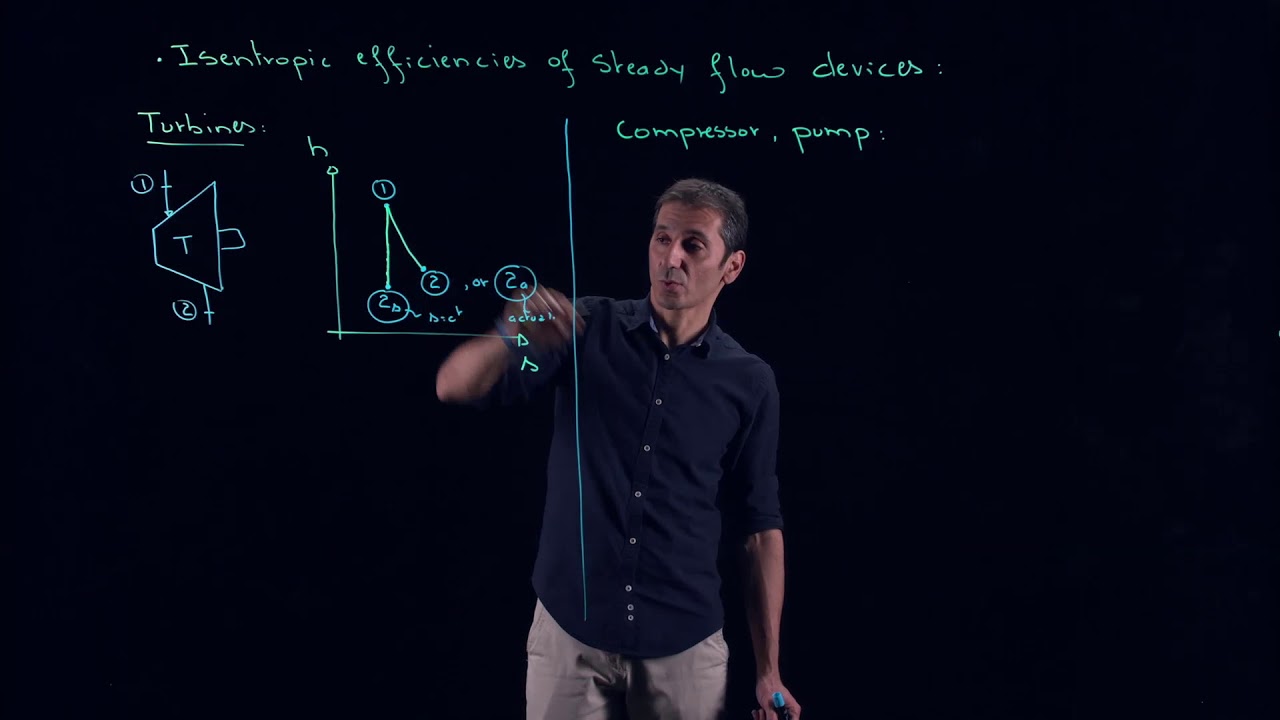 · Isentropic efficiencies of steady flow devices:
Turbines:
compressor, pump:
h
1
1
T
2
2
, or
2a
2s
s=ct
actual
s